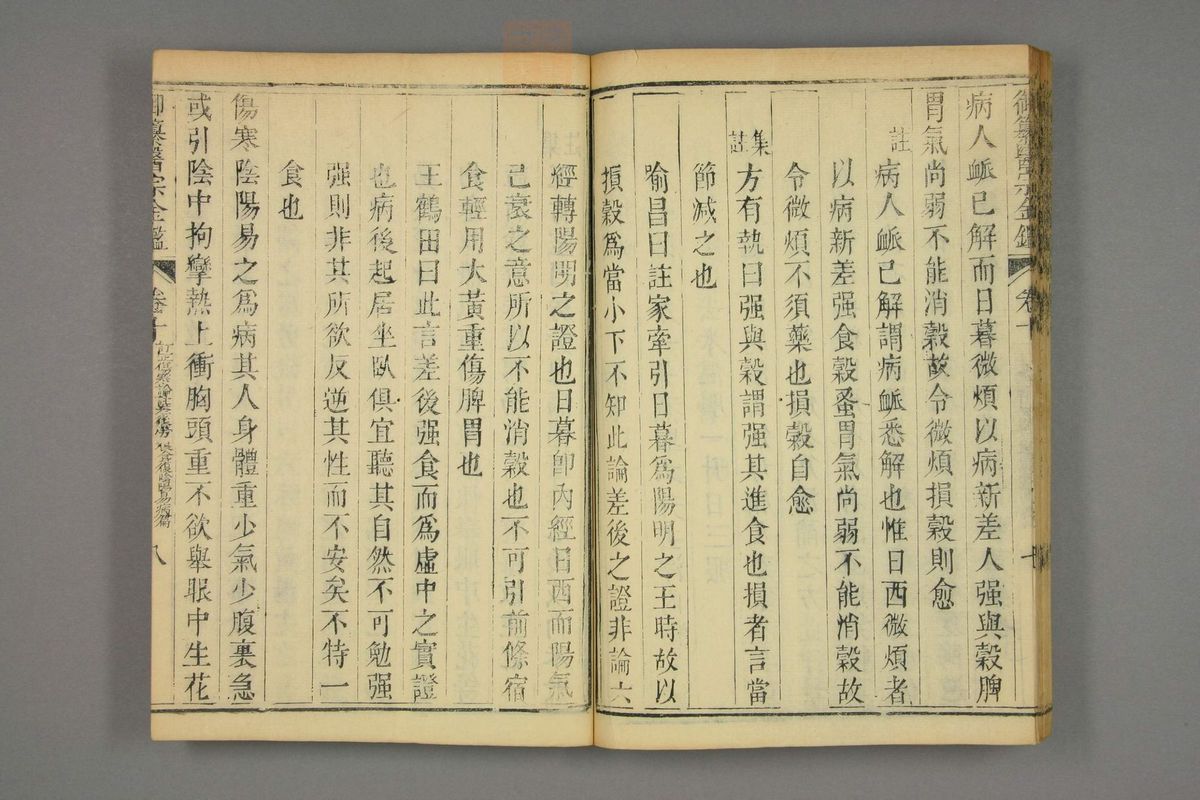 御纂醫宗金鑑 卷十
病人脈已解而日暮微煩以病新差人强與穀脾
胃氣尚弱不能消穀故令微煩損穀則愈
註 病人脈已解謂病脈悉解也惟日西微煩者
以病新差强食穀蚤胃氣尚弱不能消穀故
令微煩不須藥也損穀自愈
集註 方有執曰强與穀謂强其進食也損者言當
節減之也
喻昌曰註家牽引日暮爲陽明之王時故以
損穀爲當小下不知此論差後之證非論六
經轉陽明之證也日暮卽內經日西而陽氣
已衰之意所以不能消穀也不可引前條宿
食輕用大黃重傷脾胃也
王鶴田曰此言差後强食而爲虛中之實證
也病後起居坐臥俱宜聽其自然不可勉强
强則非其所欲反逆其性而不安矣不特一
食也
傷寒陰陽易之爲病其人身體重少氣少腹裏急
或引陰中拘攣熱上衝胸頭重不欲舉眼中生花
御纂醫宗金鑑 卷十 八